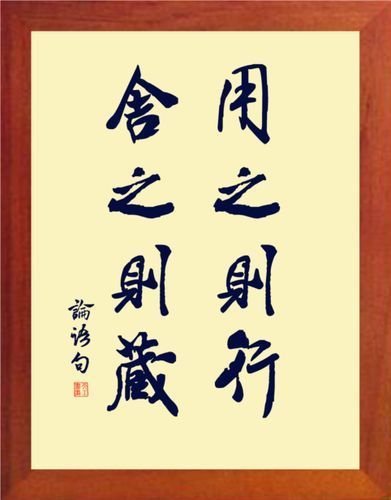 用之則行
舍之則蔵
論语句